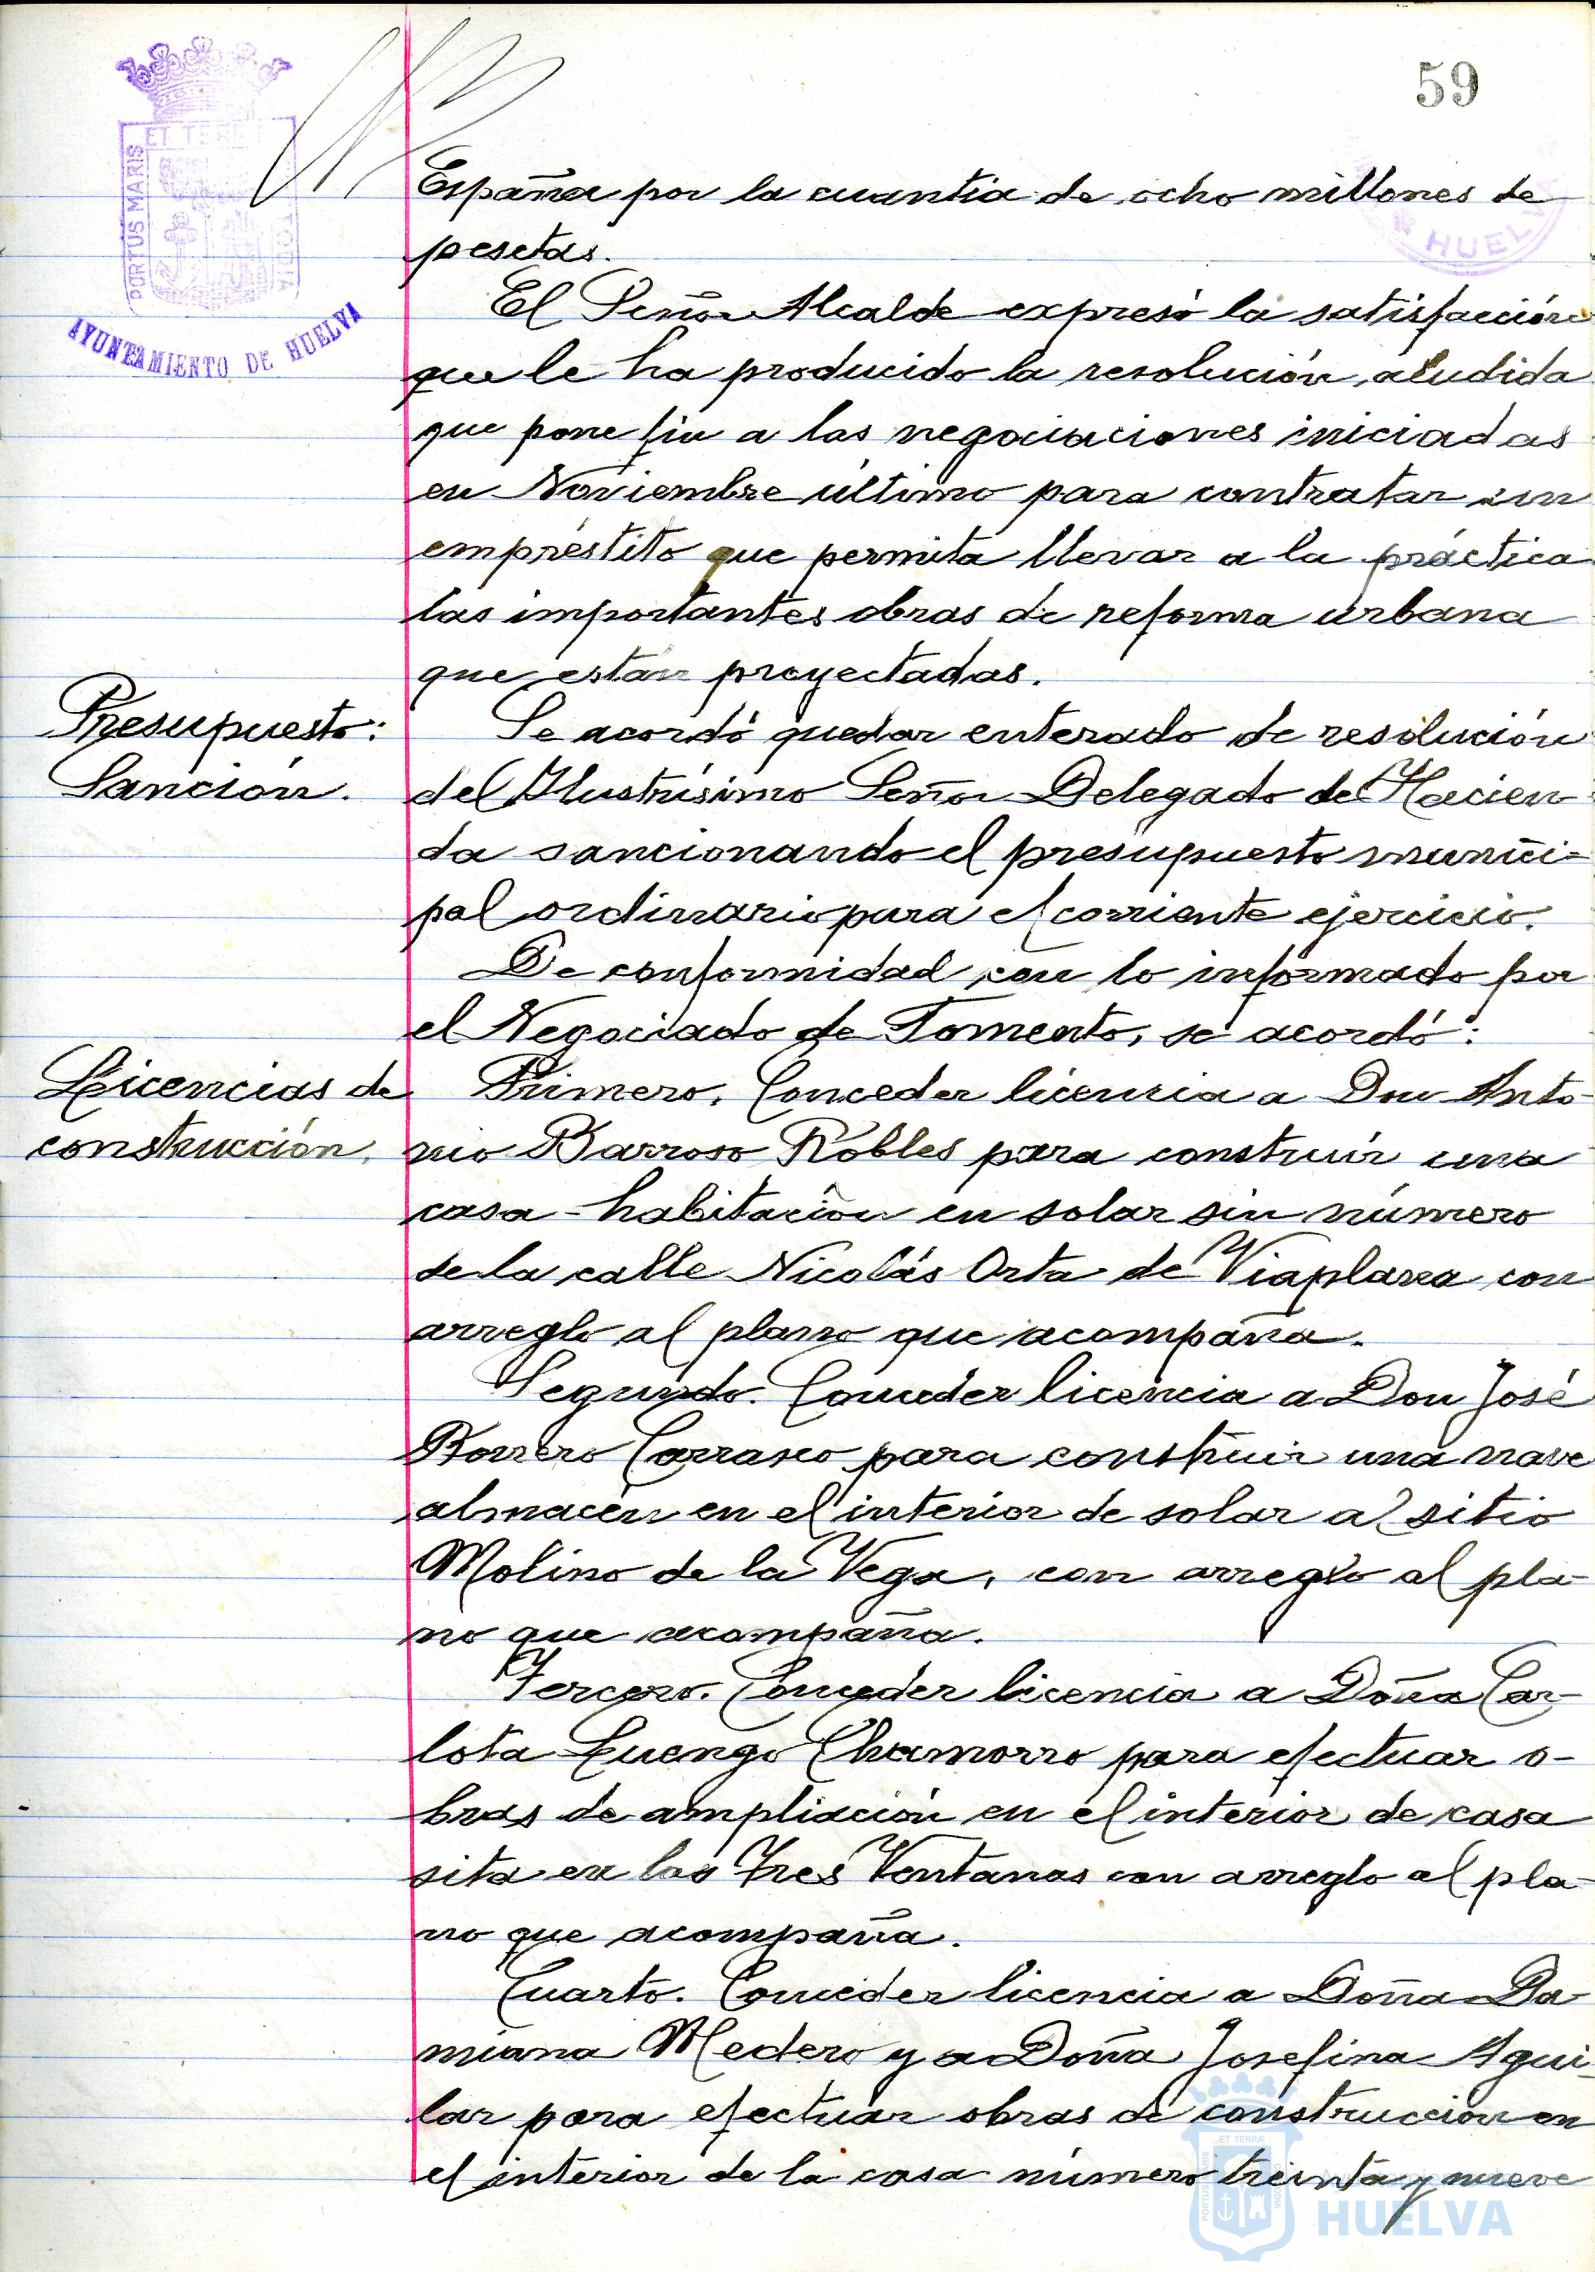 59
ET TERRÆ
PORTUS MARIS
AYUNTAMIENTO DE HUELVA
HUELVA
España por la cuantía de ocho millones de
pesetas.
El Señor Alcalde expresó la satisfacción
que le ha producido la resolución aludida
que pone fin a las negociaciones iniciadas
en Noviembre último para contratar un
empréstito que permita llevar a la práctica
las importantes obras de reforma urbana
que están proyectadas.
Presupuesto:
Sanción.
Se acordó quedar enterado de resolución
del Ilustrísimo Señor Delegado de Hacien-
da sancionando el presupuesto munici-
pal ordinario para el corriente ejercicio.
De conformidad con lo informado por
el Negociado de Fomento, se acordó:
Licencias de
construcción.
Primero. Conceder licencia a Don Anto-
nio Barroso Robles para construir una
casa-habitación en solar sin número
de la calle Nicolás Orta de Viaplana con
arreglo al plano que acompaña.
Segundo. Conceder licencia a Don José
Borrero Carrasco para construir una nave
almacén en el interior de solar al sitio
Molino de la Vega, con arreglo al pla-
no que acompaña.
Tercero. Conceder licencia a Doña Car-
lota Luengo Chamorro para efectuar o-
bras de ampliación en el interior de casa
sita en las Tres Ventanas con arreglo al pla-
no que acompaña.
Cuarto. Conceder licencia a Doña Da
miana Medero y a Doña Josefina Agui-
lar para efectuar obras de construcción en
el interior de la casa número treinta y nueve
HUELVA